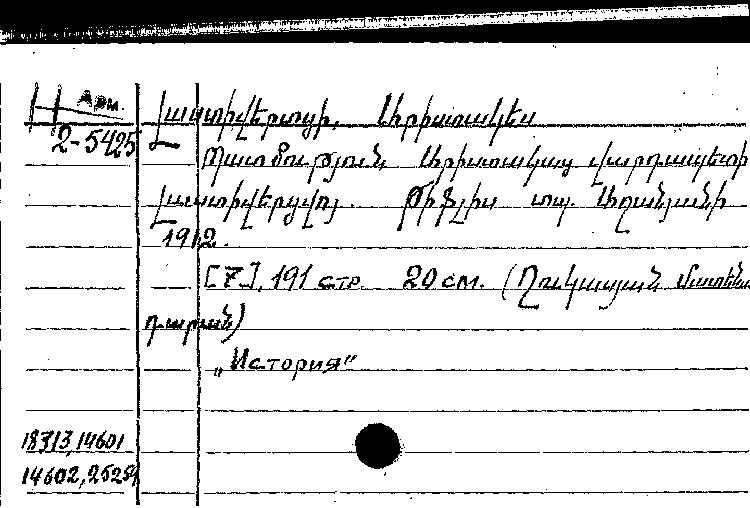 Арм.
2-5425
Լաստիվերտցի, Արիստակես
Պատմություն Արիստակայ վարդապետի
Լաստիվերցվոյ. Թիֆլիս տպ. Աղանյանի
1912.
[7], 191 стр 20 см. (Ղուկասյան մատենա
դարան)
„История"
18313, 14601
14602, 25254